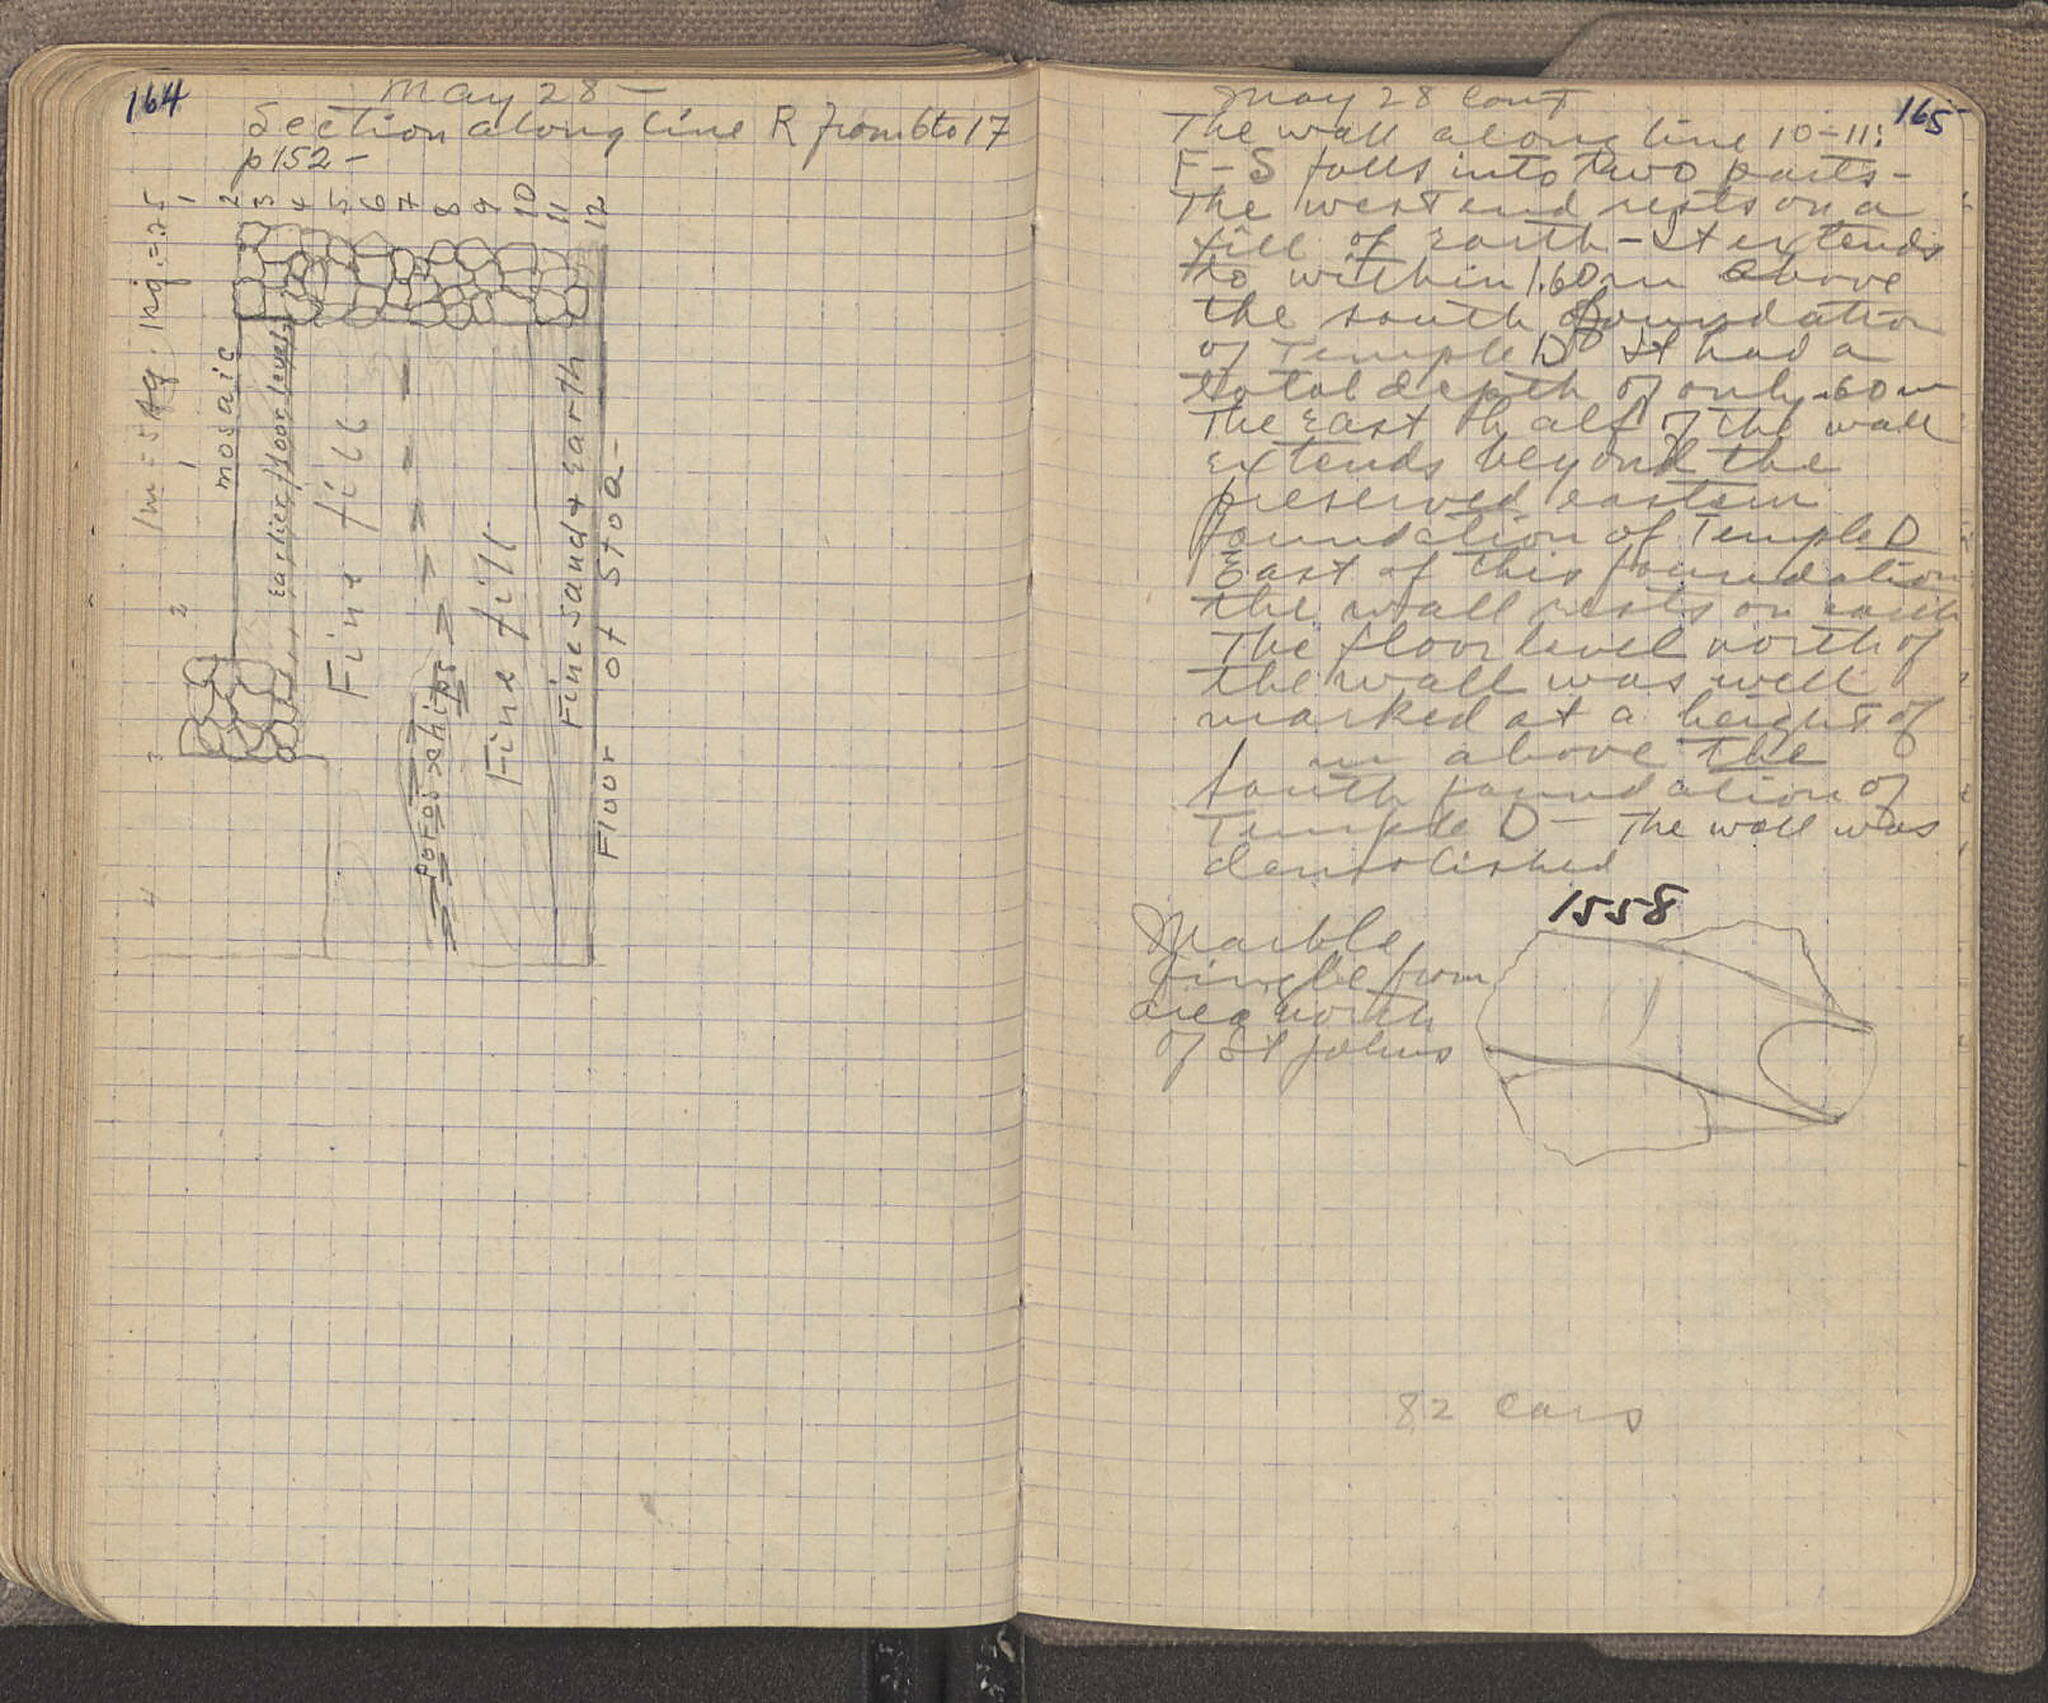 164
May 28 —
Section along line R from 6 to 17
p 152 —
1m = 5 sq. 1 sq. = .25
1
2
3
4
5
6
7
8
9
10
11
12
1
2
3
4
mosaic
Earlier floor level
Fine fill
Poros chips
Fine fill
Fine sand & Earth
Floor of Stoa —
165
May 28 Cont
The wall along line 10-11:
F-S falls into two parts —
The west end rests on a
fill of earth — It extends
to within 1.60 m above
the south foundation
of Temple D It had a
total depth of only .60 m
The East half of the wall
extends beyond the
preserved eastern
foundation of Temple D
East of this foundation
the wall rests on earth
The floor level north of
the wall was well
marked at a height of
m above the
south foundation of
Temple D — The wall was
demolished
1558
Marble
from
area north
of St Johns
82 cars